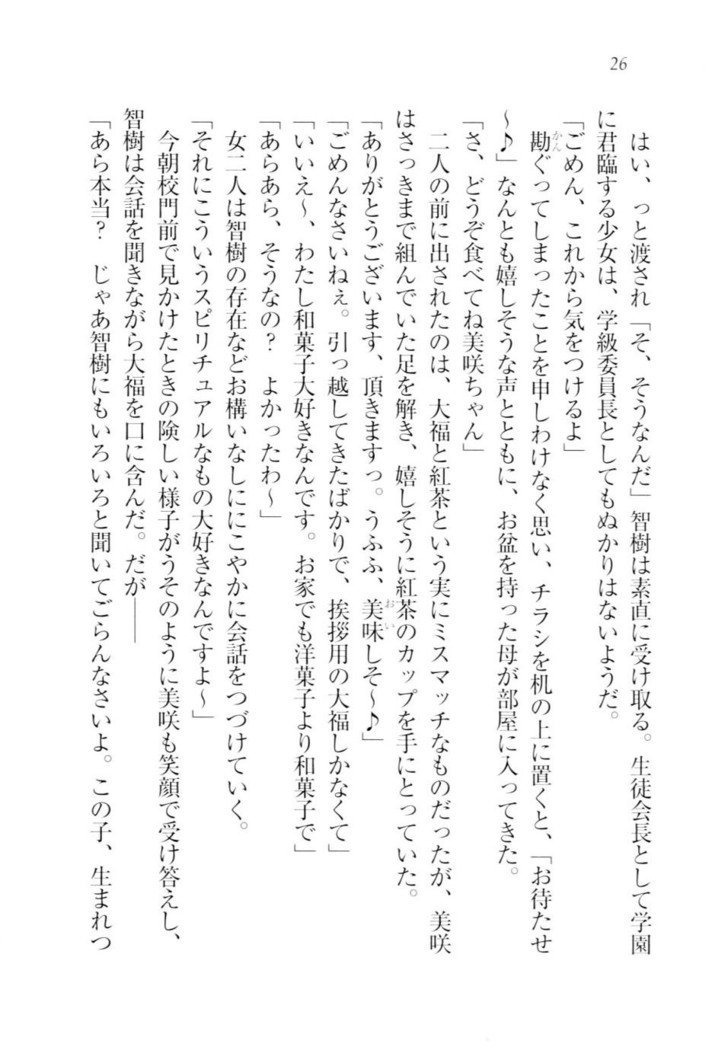 26
はい、っと渡され「そ、そうなんだ」智樹は素直に受け取る。生徒会長として学園
に君臨する少女は、学級委員長としてもぬかりはないようだ。
「ごめん、これから気をつけるよ」
勘ぐってしまったことを申しわけなく思い、チラシを机の上に置くと、「お待たせ
～♪」なんとも嬉しそうな声とともに、お盆を持った母が部屋に入ってきた。
「さ、どうぞ食べてね美咲ちゃん」
二人の前に出されたのは、大福と紅茶という実にミスマッチなものだったが、美咲
はさっきまで組んでいた足を解き、嬉しそうに紅茶のカップを手にとっていた。
「ありがとうございます、頂きますっ。うふふ、美味しそ～♪」
「ごめんなさいねぇ。引っ越してきたばかりで、挨拶用の大福しかなくて」
「いいえ～、わたし和菓子大好きなんです。お家でも洋菓子より和菓子で」
「あらあら、そうなの？　よかったわ～」
女二人は智樹の存在などお構いなしににこやかに会話をつづけていく。
「それにこういうスピリチュアルなもの大好きなんですよ～」
今朝校門前で見かけたときの険しい様子がうそのように美咲も笑顔で受け答えし、
智樹は会話を聞きながら大福を口に含んだ。だが――
「あら本当？　じゃあ智樹にもいろいろと聞いてごらんなさいよ。この子、生まれつ